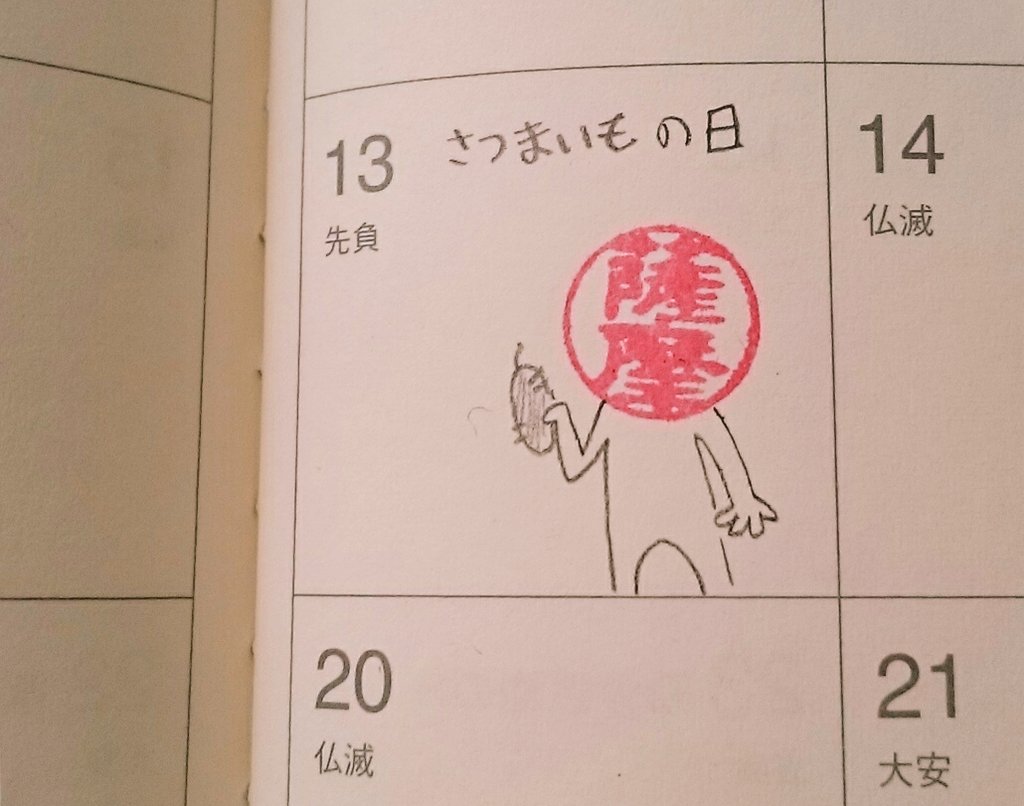 13
さつまいもの日
先負
薩摩
14
仏滅
20
仏滅
21
大安